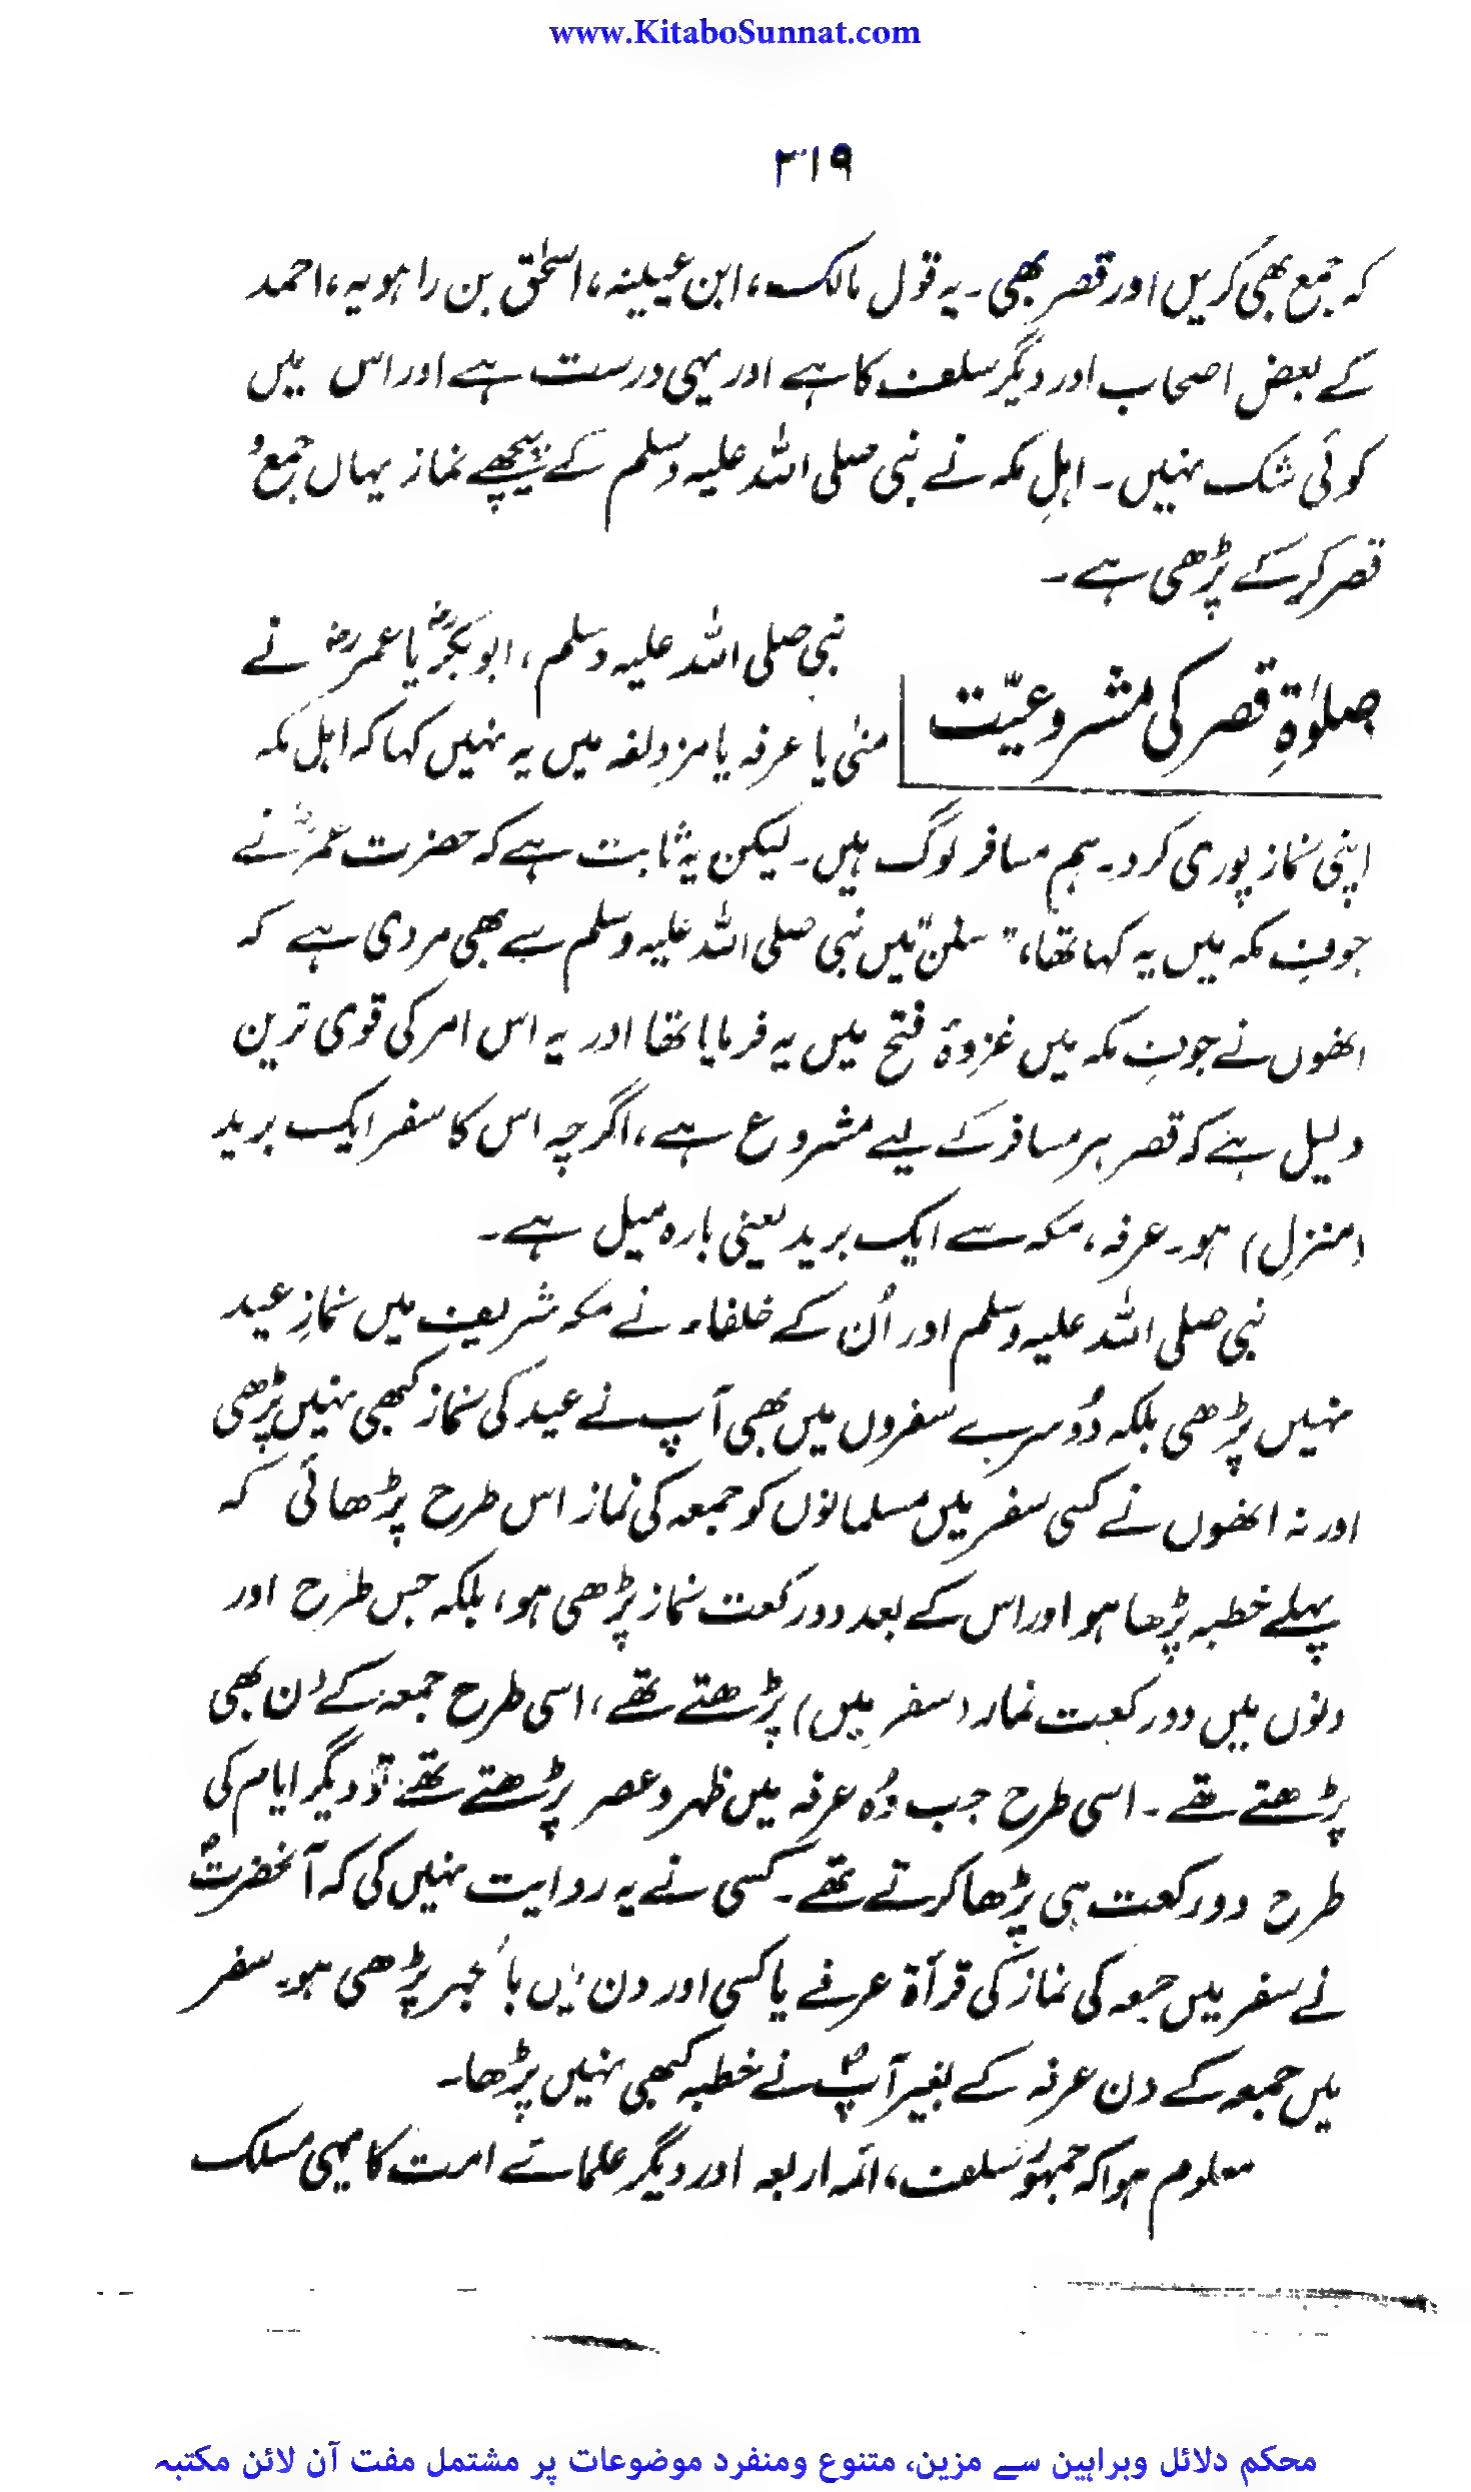 www.KitaboSunnat.com
۳۱۹
کہ جمع بھی کریں اور قصر بھی۔ یہ قول مالک، ابن عیینہ، اسحٰق بن راہویہ، احمد
کے بعض اصحاب اور دیگر سلف کا ہے اور یہی درست ہے اور اس میں
کوئی شک نہیں۔ اہلِ مکہ نے نبی صلی اللہ علیہ وسلم کے پیچھے نماز یہاں جمع و
قصر کر کے پڑھی ہے۔
صلوٰۃِ قصر کی مشروعیّت
نبی صلی اللہ علیہ وسلم، ابوبکرؓ یا عمرؓ نے
منیٰ یا عرفہ یا مزدلفہ میں یہ نہیں کہا کہ اہل مکہ
اپنی نماز پوری کرو۔ ہم مسافر لوگ ہیں۔ لیکن یہ ثابت ہے کہ حضرت عمرؓ نے
جوفِ مکہ میں یہ کہا تھا، "سنن" میں نبی صلی اللہ علیہ وسلم سے بھی مروی ہے کہ
انھوں نے جوفِ مکہ میں غزوۂ فتح میں یہ فرمایا تھا اور یہ اس امر کی قوی ترین
دلیل ہے کہ قصر ہر مسافر کے لیے مشروع ہے، اگرچہ اس کا سفر ایک برید
(منزل) ہو۔ عرفہ، مکہ سے ایک برید یعنی بارہ میل ہے۔
نبی صلی اللہ علیہ وسلم اور اُن کے خلفاء نے مکہ شریف میں نمازِ عید
نہیں پڑھی بلکہ دُوسرے سفروں میں بھی آپ نے عید کی نماز کبھی نہیں پڑھی
اور نہ انھوں نے کسی سفر میں مسلمانوں کو جمعہ کی نماز اس طرح پڑھائی کہ
پہلے خطبہ پڑھا ہو اور اس کے بعد دو رکعت نماز پڑھی ہو، بلکہ جس طرح اور
دنوں میں دو رکعت نماز (سفر میں) پڑھتے تھے، اسی طرح جمعہ کے دن بھی
پڑھتے تھے۔ اسی طرح جب وُہ عرفہ میں ظہر و عصر پڑھتے تھے تو دیگر ایام کی
طرح دو رکعت ہی پڑھا کرتے تھے۔ کسی نے یہ روایت نہیں کی کہ آنحضرتؐ
نے سفر میں جمعہ کی نماز کی قرآۃ عرفے یا کسی اور دن میں بالجہر پڑھی ہو۔ سفر
میں جمعہ کے دن عرفہ کے بغیر آپؐ نے خطبہ کبھی نہیں پڑھا۔
معلوم ہوا کہ جمہُور سلف، ائمہ اربعہ اور دیگر علمائے امت کا یہی مسلک
محکم دلائل وبراہین سے مزین، متنوع ومنفرد موضوعات پر مشتمل مفت آن لائن مکتبہ